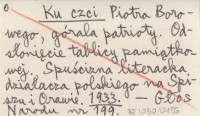 Ku czci Piotra Boro-
wego, górala patrioty. Od-
słonięcie tablicy pamiątko-
wej. Spuścizna literacka
działacza polskiego na Spi-
szu i Orawie. 1933. — Głos
Narodu nr 199.